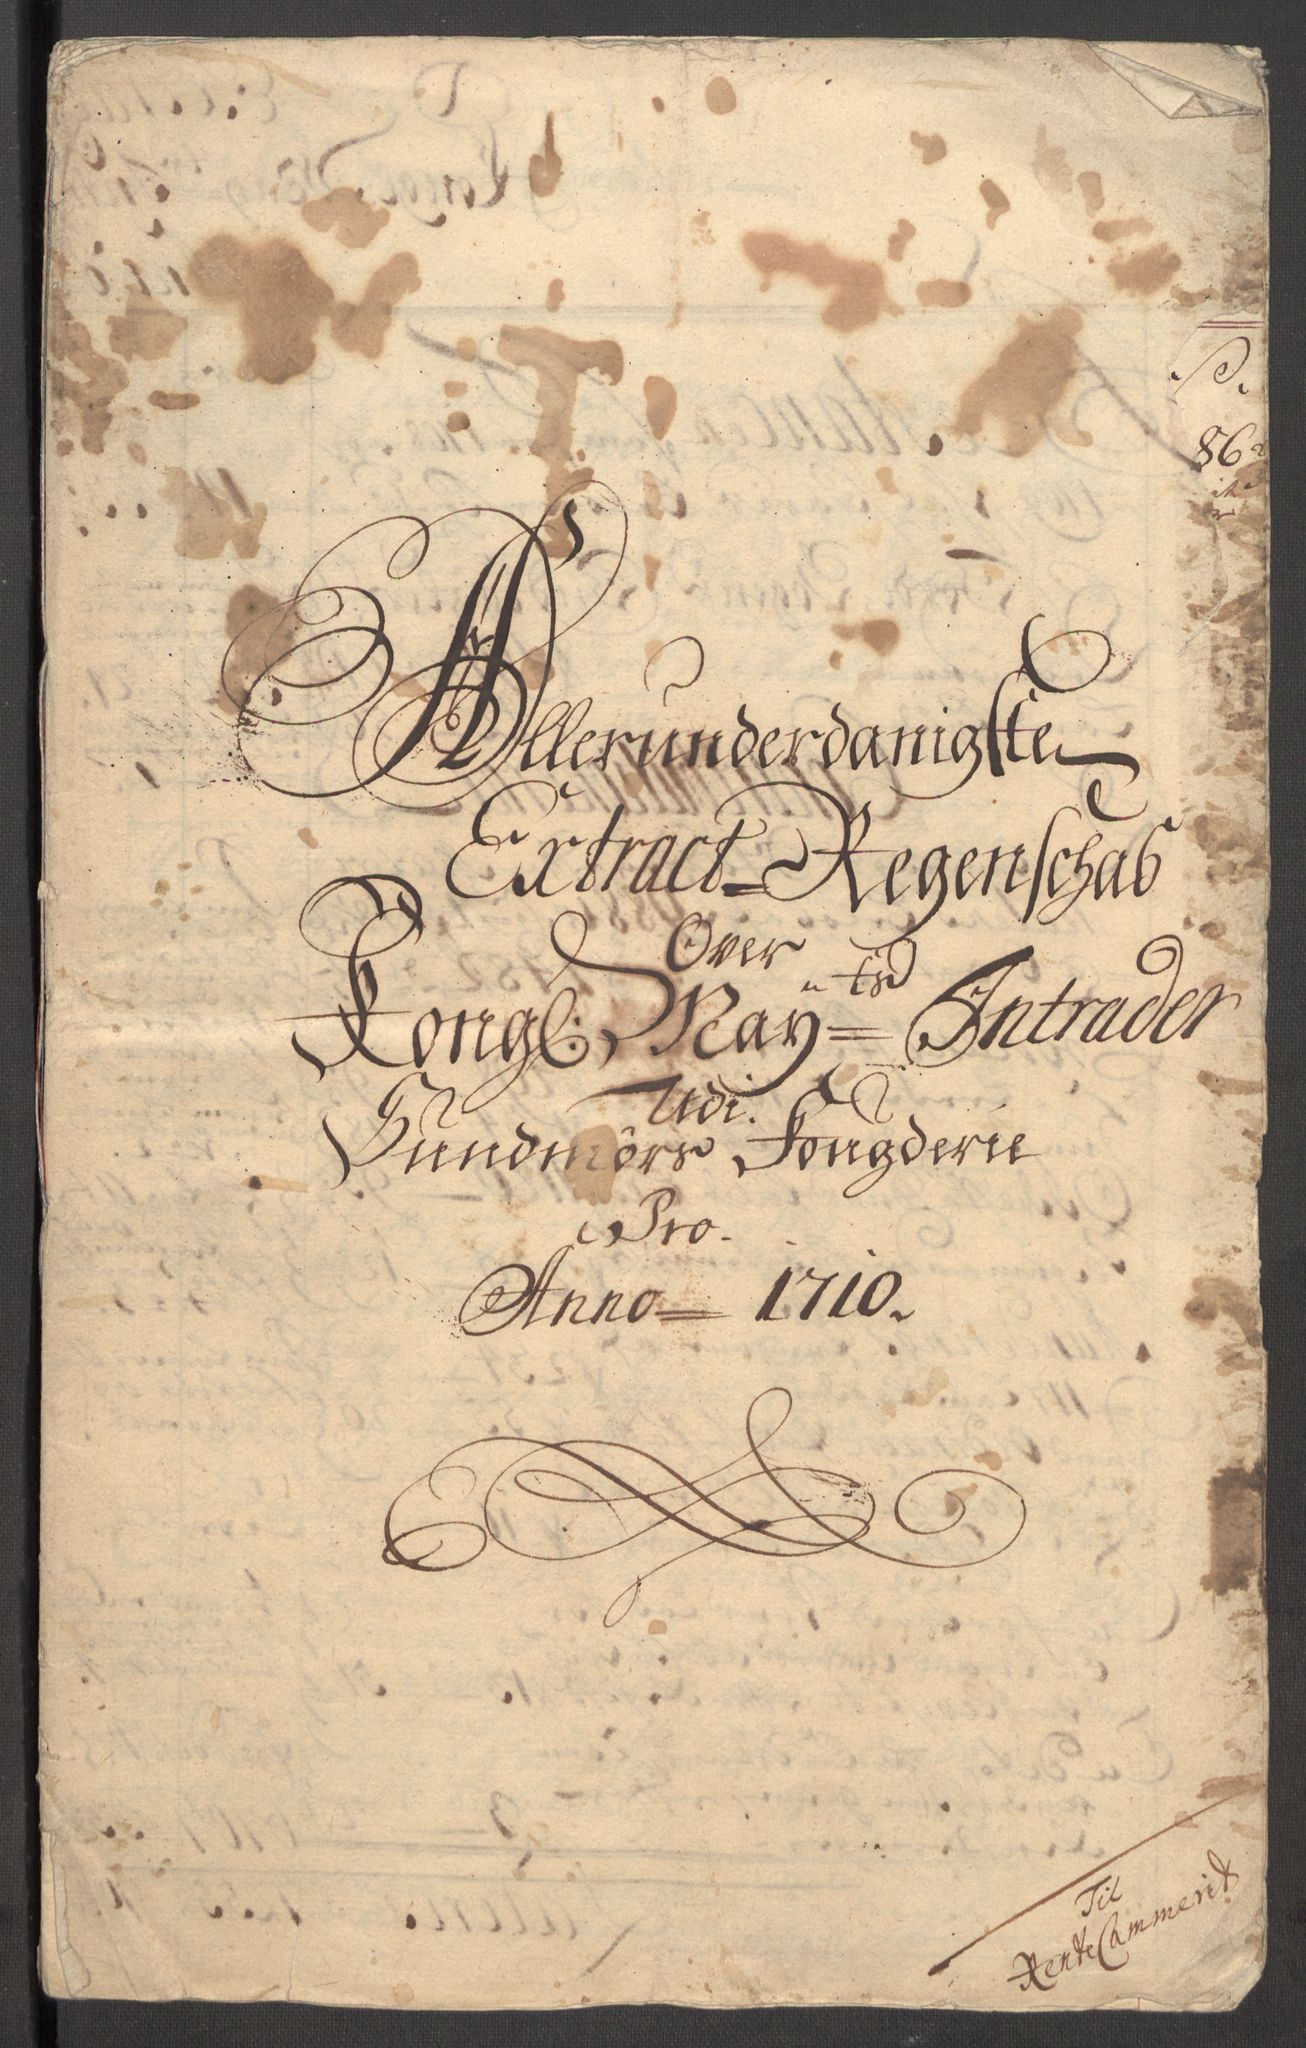 Allerunderdanigste
Extract Regenschab
Over
Kongl: May:ts Intrader
Udi.
Sundmörs Fougderie
Pro.
Anno 1710.
Til
RenteCammerit